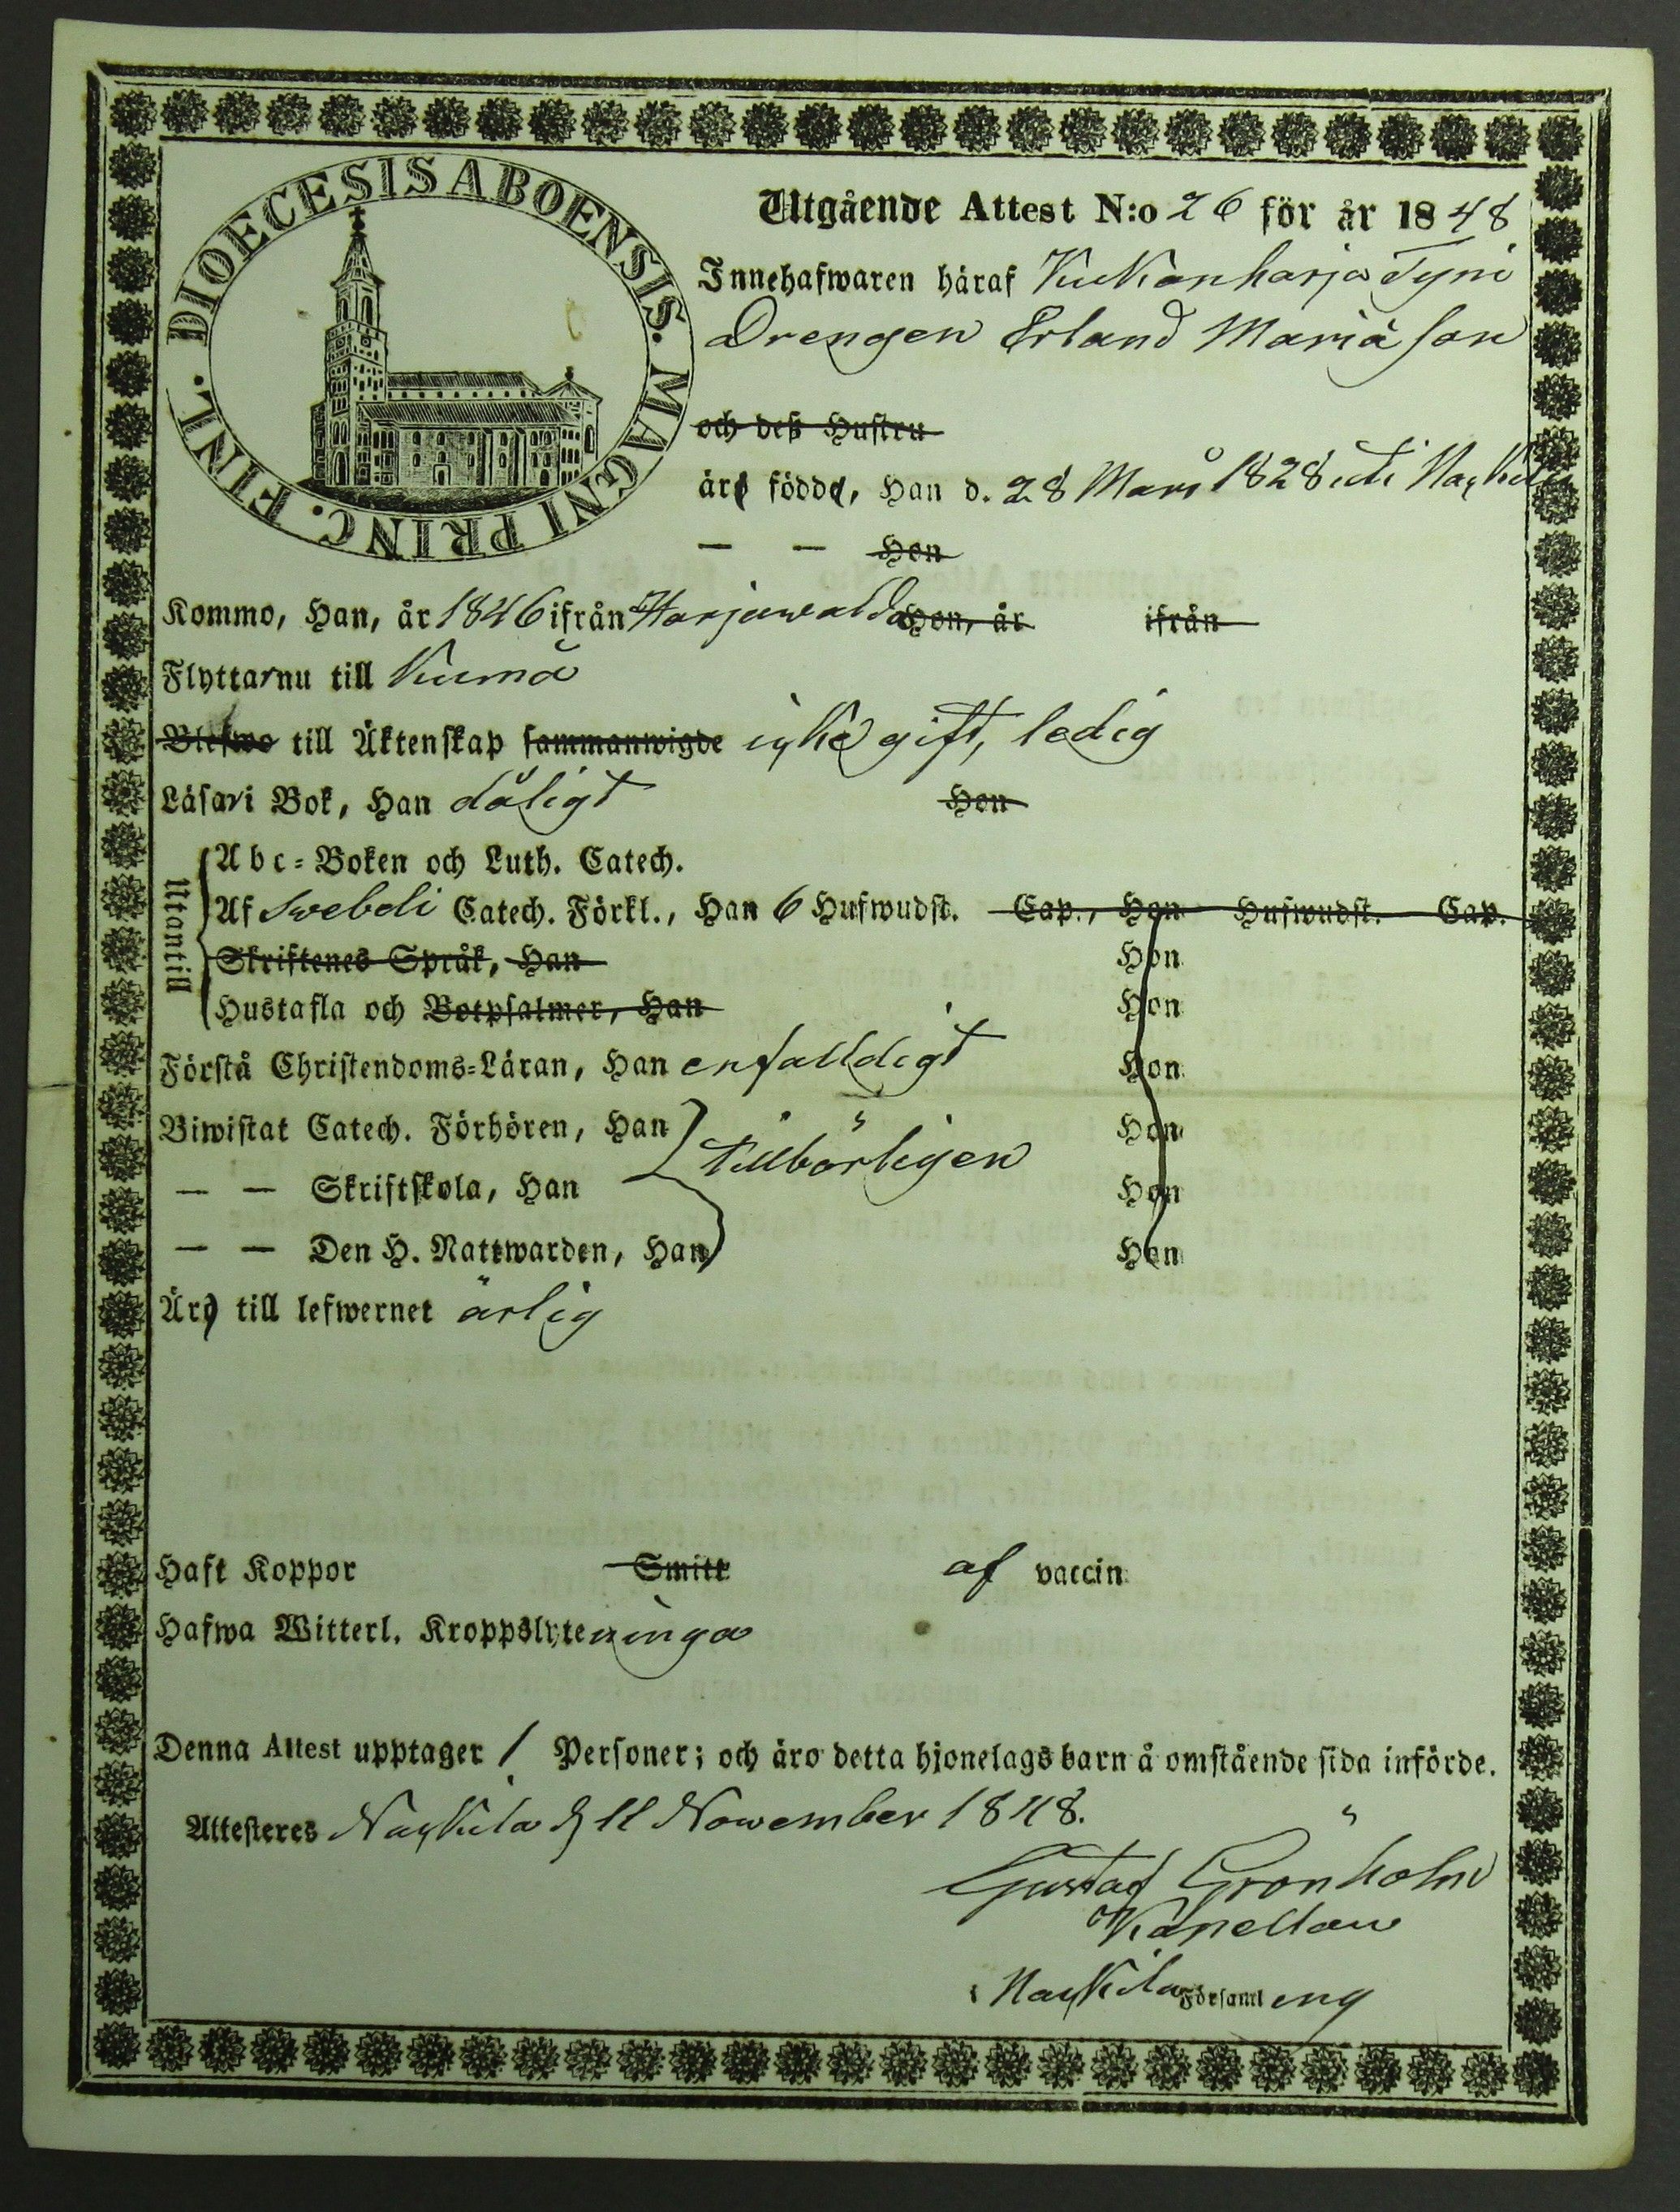 DIOECESIS ABOENSIS. MAGNI PRINC. FINL.
Utgående Attest N:o 26 för år 1848
Innehafwaren häraf Kukonharja Tyni
Drengen Erland Mariä son
och deß Hustru
äro födde, Han d. 28 Mars 1828 uti Nackila
— — Hon
Kommo, Han, år 1846 ifrån Harjawalda Hon, år ifrån
Flytta nu till Kumå
Blefwo till Äktenskap sammanwigde icke gift, ledig
Läsa i Bok, Han dåligt Hon
Utantill
Abc-Boken och Luth. Catech.
Af Swebeli Catech. Förkl., Han 6 Hufwudst. Cap., Hon Hufwudst. Cap.
Skriftenes Språk, Han Hon
Hustafla och Botpsalmer, Han Hon
Förstå Christendoms-Läran, Han enfalldigt Hon
Biwistat Catech. Förhören, Han tillbörligen Hon
— — Skriftskola, Han Hon
— — Den H. Nattwarden, Han Hon
Äro till lefwernet ärlig
Haft Koppor Smitt af vaccin
Hafwa Witterl. Kroppslyten inga
Denna Attest upptager 1 Personer; och äro detta hjonelags barn å omstående sida införde.
Attesteres Nackila d 11 November 1848.
Gustaf Grönholm
Kapellan
i Nackila Församling